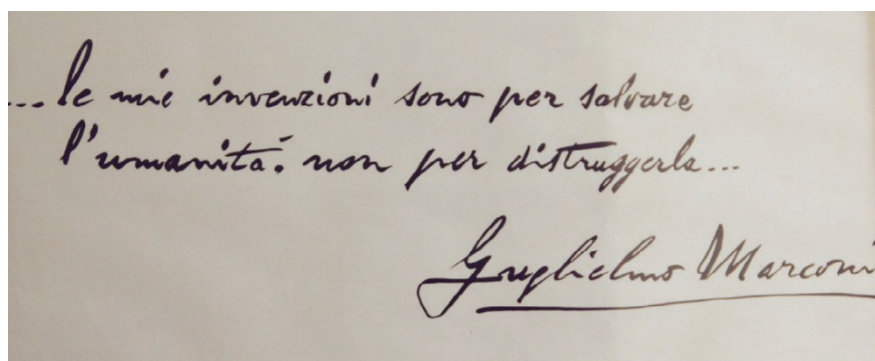 ...le mie invenzioni sono per salvare
l'umanità. non per distruggerla...
Guglielmo Marconi